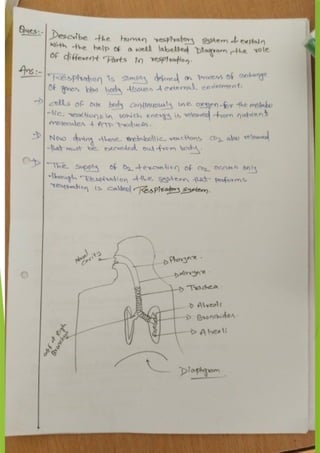 Ques:- Describe the human respiratory system & explain
with the help of a well labelled Diagram the role
of different Parts in respiration.
Ans:- Respiration is simply defined as Process of exchange
of gases b/w body tissues & external
→ cells of our body continuously use oxygen for the metabo
-lic reactions in which energy is released from nutrient
molecules & ATP Produces.
→ Now during these metabolic reactions CO2 also released
that must be excreted out from body.
→ The supply of O2 & excretion of CO2 occurs only
through Respiration & the system that performs
respiration is called Respiratory system.
Nasal cavity
Pharynx.
Larynx.
Trachea
Alveoli
Bronchioles.
Alveoli
Diaphragm.